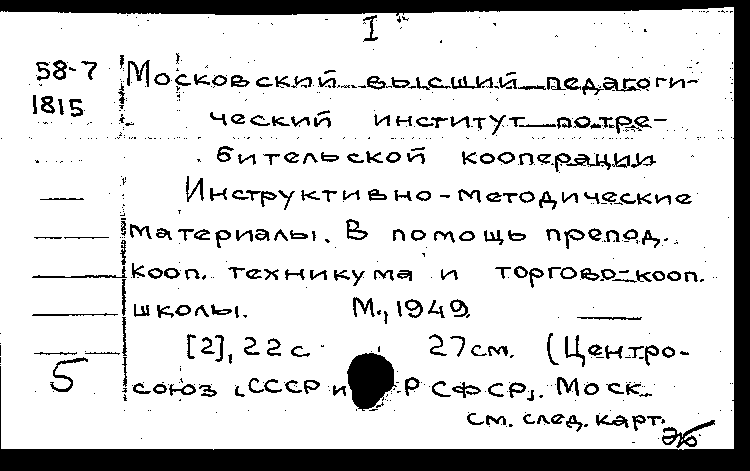 I
58-7 Московский высший педагоги-
1815 ческий институт потре-
бительской кооперации
Инструктивно-методические
материалы. В помощь препод.
кооп. техникума и торгово-кооп.
школы. М., 1949.
[2], 22 с. 27см. (Центро-
5 союз СССР и РСФСР. Моск.
см. след. карт.